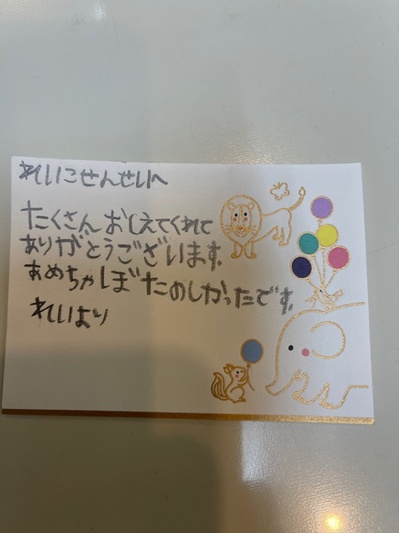 れいこせんせいへ
たくさんおしえてくれて
ありがとうございます。
あめちゃぼたのしかったです。
れいより